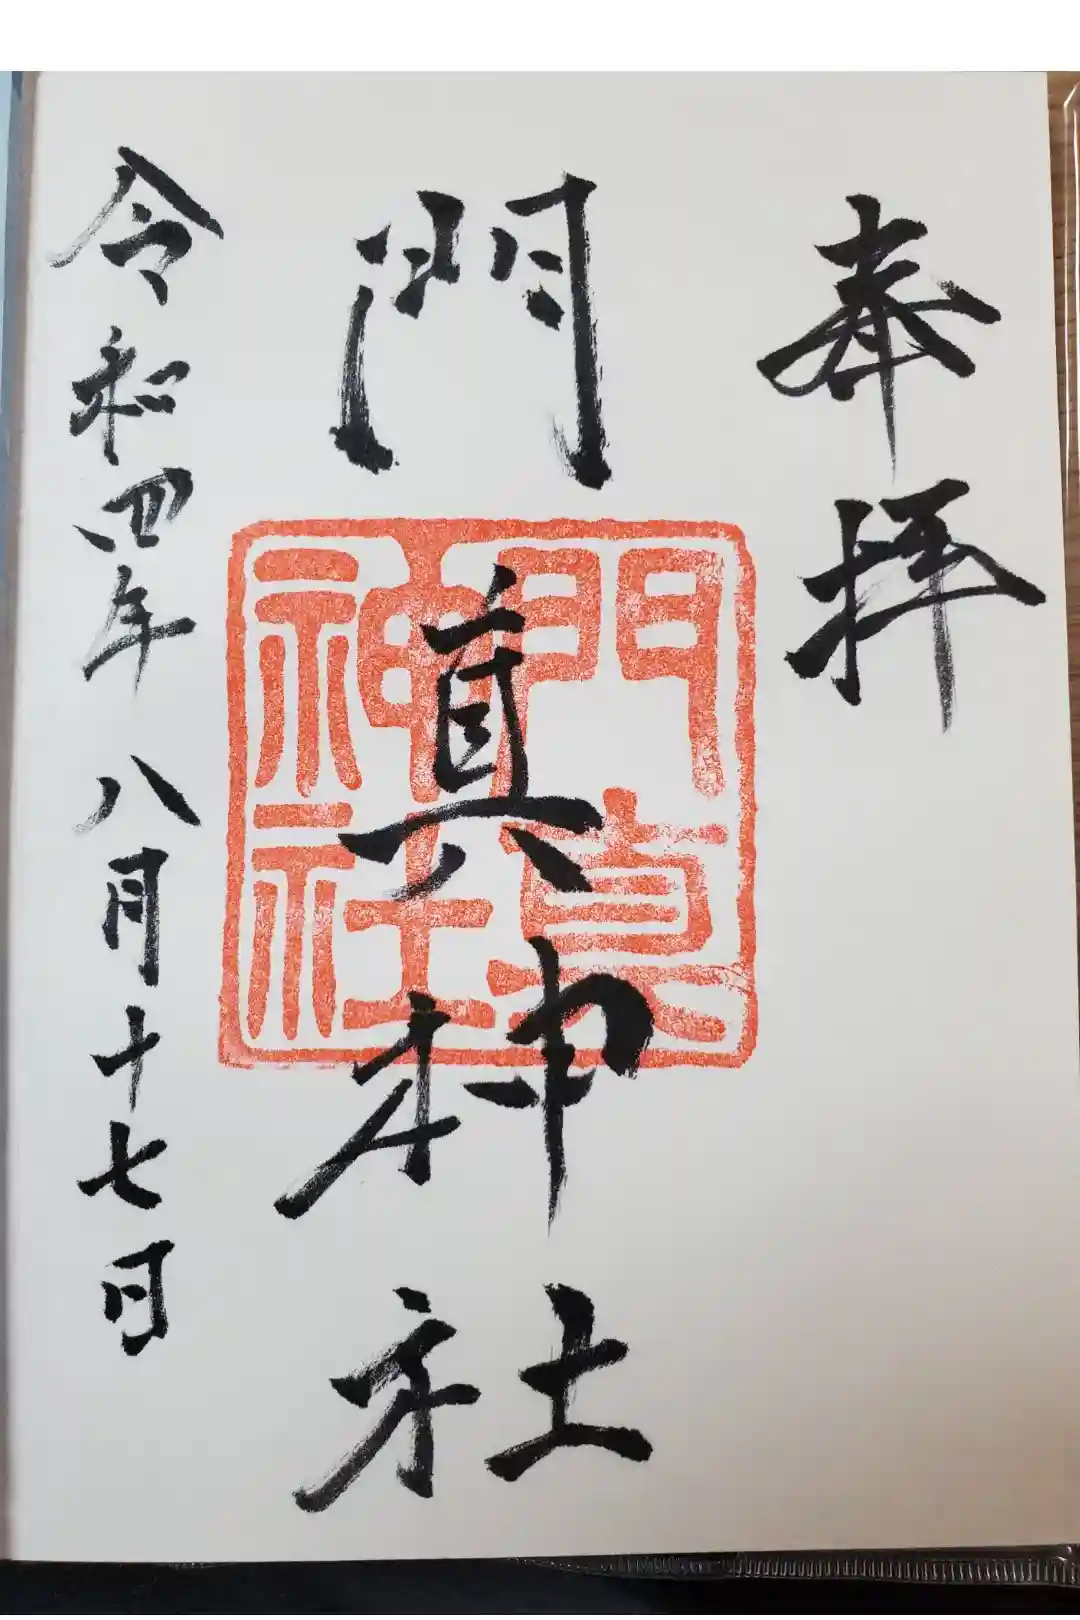 奉拝
門真神社
門真
神社
令和四年八月十七日